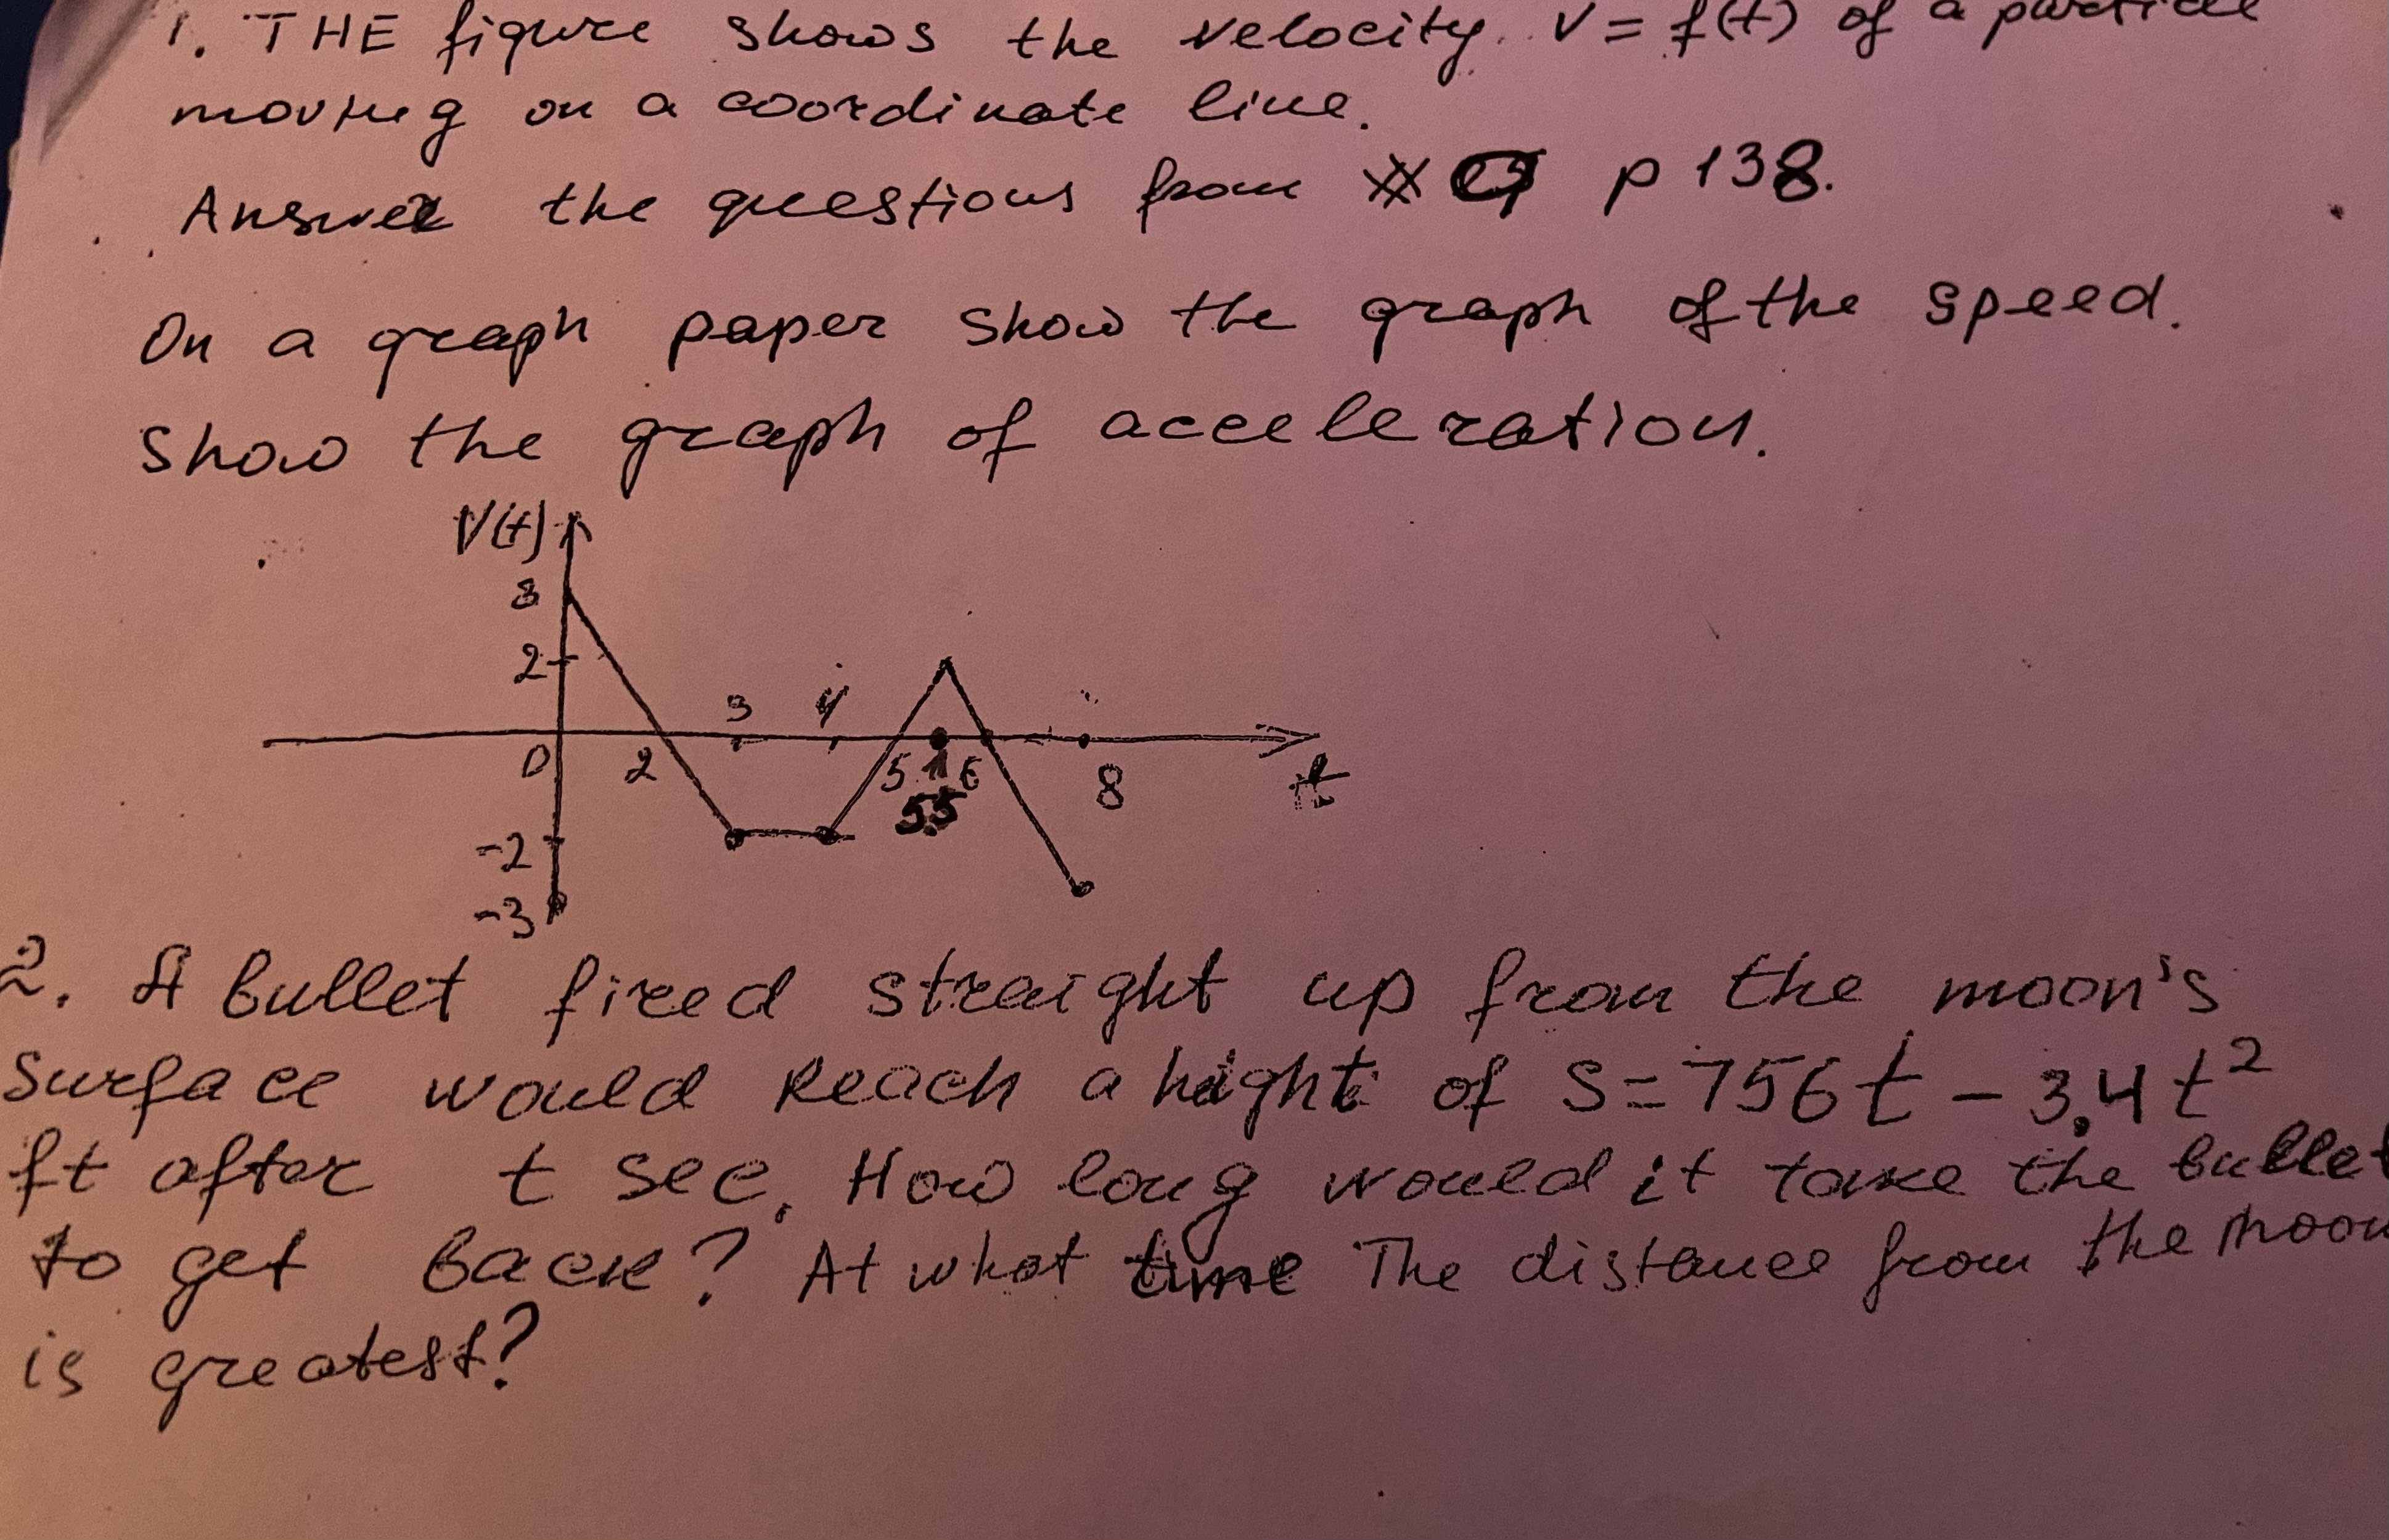 1. THE figure shows the velocity v = f(t) of a particle
moving on a coordinate line.
Answer the questions from # 9 p 138.
On a graph paper show the graph of the speed.
Show the graph of acceleration.
V(t)
3
2
3 4
0 2 5 6 8 t
5.5
-2
-3
2. A bullet fired straight up from the moon's
surface would reach a height of S=756t - 3.4t²
ft after t sec. How long would it take the bullet
to get back? At what time The distance from the moon
is greatest?